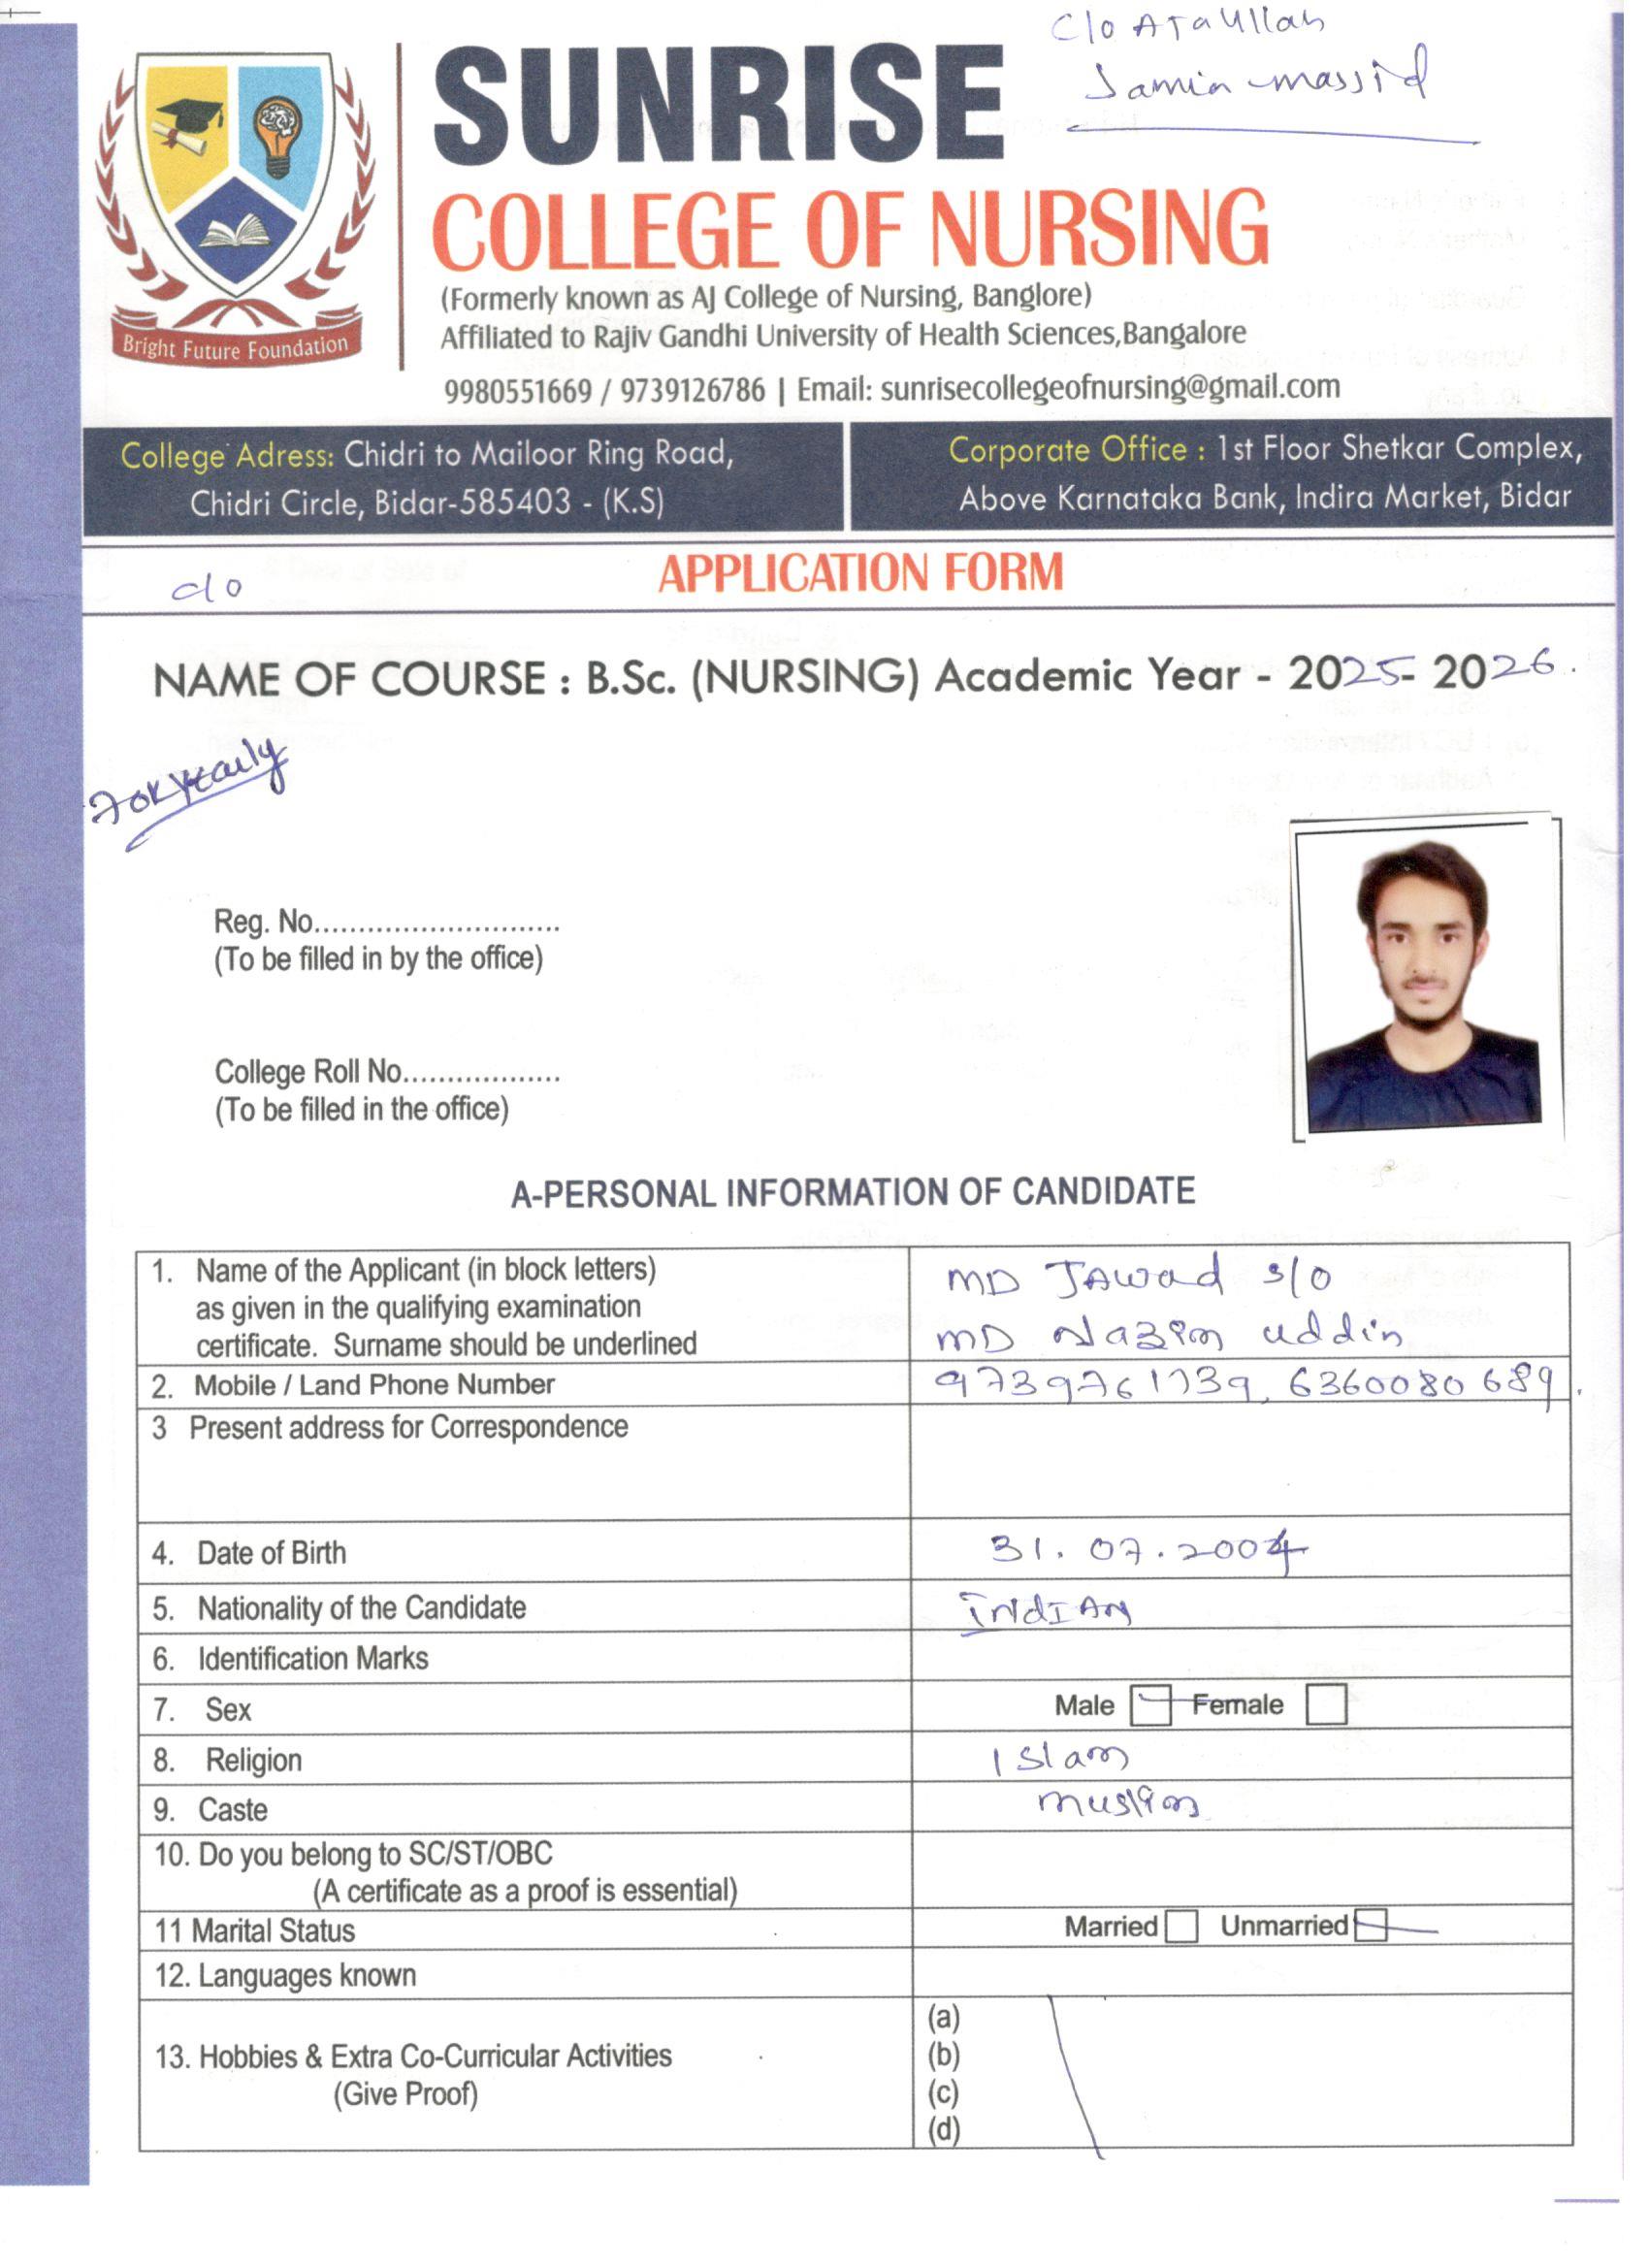 C/o Ataullah
Jamia massjid
SUNRISE
COLLEGE OF NURSING
(Formerly known as AJ College of Nursing, Banglore)
Affiliated to Rajiv Gandhi University of Health Sciences,Bangalore
9980551669 / 9739126786 | Email: sunrisecollegeofnursing@gmail.com
Bright Future Foundation
College Adress: Chidri to Mailoor Ring Road,
Chidri Circle, Bidar-585403 - (K.S)
Corporate Office : 1st Floor Shetkar Complex,
Above Karnataka Bank, Indira Market, Bidar
APPLICATION FORM
c/o
NAME OF COURSE : B.Sc. (NURSING) Academic Year - 2025- 2026.
For Yearly
Reg. No............................
(To be filled in by the office)
College Roll No..................
(To be filled in the office)
A-PERSONAL INFORMATION OF CANDIDATE
1. Name of the Applicant (in block letters)
as given in the qualifying examination
certificate. Surname should be underlined
MD JAWad S/O
MD Nazim uddin
2. Mobile / Land Phone Number
9739761739, 6360080689.
3 Present address for Correspondence
4. Date of Birth
31.07.2004
5. Nationality of the Candidate
INdIAN
6. Identification Marks
7. Sex
Male Female
8. Religion
Islam
9. Caste
muslim
10. Do you belong to SC/ST/OBC
(A certificate as a proof is essential)
11 Marital Status
Married Unmarried
12. Languages known
13. Hobbies & Extra Co-Curricular Activities
(Give Proof)
(a)
(b)
(c)
(d)